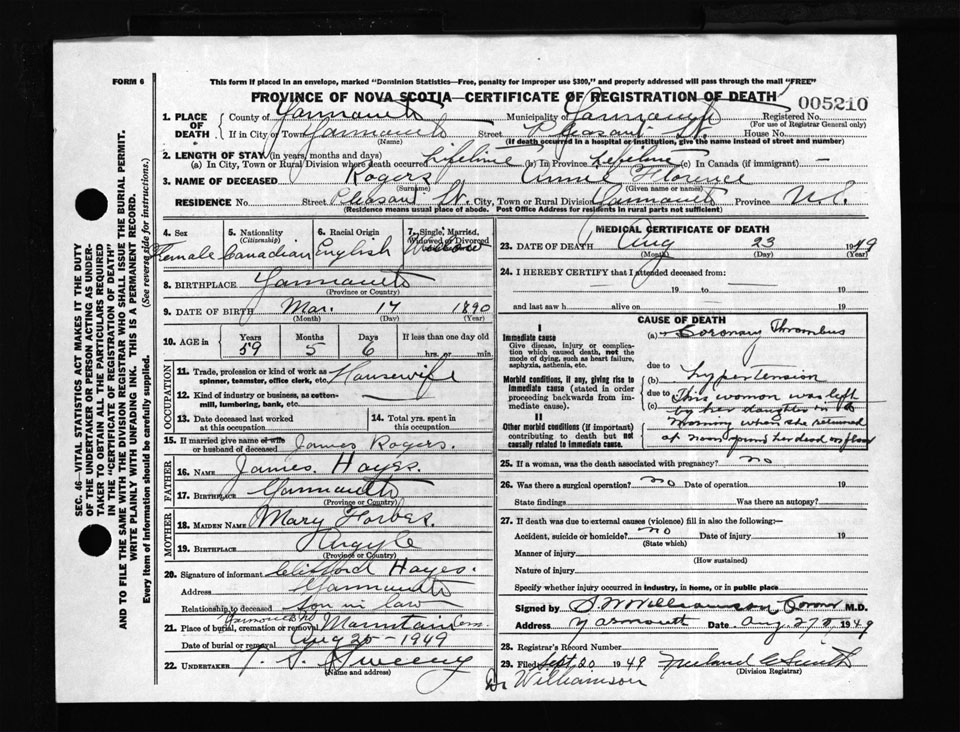 FORM 6
This form if placed in an envelope, marked "Dominion Statistics—Free, penalty for improper use $300," and properly addressed will pass through the mail "FREE"
PROVINCE OF NOVA SCOTIA—CERTIFICATE OF REGISTRATION OF DEATH
005210
1. PLACE OF DEATH
County of Yarmouth Municipality of Yarmouth Registered No.
(For use of Registrar General only)
If in City or Town Yarmouth Street Pleasant St. House No.
(Name) (If death occurred in a hospital or institution, give the name instead of street and number)
2. LENGTH OF STAY (in years, months and days)
(a) In City, Town or Rural Division where death occurred Lifetime (b) In Province Lifetime (c) In Canada (if immigrant) —
3. NAME OF DECEASED Rogers Annie Florence
(Surname) (Given name or names)
RESIDENCE No. Street Pleasant St. City, Town or Rural Division Yarmouth Province N.S.
(Residence means usual place of abode. Post Office Address for residents in rural parts not sufficient)
4. Sex Female
5. Nationality (Citizenship) Canadian
6. Racial Origin English
7. Single, Married, Widowed or Divorced Widow
8. BIRTHPLACE Yarmouth
(Province or Country)
9. DATE OF BIRTH Mar. 17 1890
(Month) (Day) (Year)
10. AGE in Years 59 Months 5 Days 6 If less than one day old hrs. or min.
OCCUPATION
11. Trade, profession or kind of work as spinner, teamster, office clerk, etc. Housewife
12. Kind of industry or business, as cotton-mill, lumbering, bank, etc. —
13. Date deceased last worked at this occupation
14. Total yrs. spent in this occupation
15. If married give name of wife or husband of deceased James Rogers.
FATHER
16. NAME James Hayes.
17. BIRTHPLACE Yarmouth
(Province or Country)
MOTHER
18. MAIDEN NAME Mary Forbes.
19. BIRTHPLACE Argyle
(Province or Country)
20. Signature of informant Clifford Hayes.
Address Yarmouth
Relationship to deceased Son in law
21. Place of burial, cremation or removal Mountain Cem.
Date of burial or removal Aug 25 - 1949
22. UNDERTAKER Sweeny
(Name and address)
MEDICAL CERTIFICATE OF DEATH
23. DATE OF DEATH Aug 23 1949
(Month) (Day) (Year)
24. I HEREBY CERTIFY that I attended deceased from:
— 19 to — 19
and last saw h alive on 19
CAUSE OF DEATH
I
Immediate cause
Give disease, injury or complication which caused death, not the mode of dying, such as heart failure, asphyxia, asthenia, etc.
Morbid conditions, if any, giving rise to immediate cause (stated in order proceeding backwards from immediate cause).
II
Other morbid conditions (if important) contributing to death but not causally related to immediate cause.
(a) Coronary Thrombus
due to
(b) hypertension
due to
(c) This woman was left
by her daughter in
morning when she returned
at noon found her dead on floor
25. If a woman, was the death associated with pregnancy? no
26. Was there a surgical operation? no Date of operation 19
State findings Was there an autopsy?
27. If death was due to external causes (violence) fill in also the following:—
Accident, suicide or homicide? no Date of injury 19
(State which)
Manner of injury
(How sustained)
Nature of injury
Specify whether injury occurred in industry, in home, or in public place
Signed by S. W. Williamson, Coroner M.D.
Address Yarmouth Date Aug 27 1949
28. Registrar's Record Number
29. Filed Sept. 20 1949 Smith
(Division Registrar)
Dr Williamson
SEC. 46—VITAL STATISTICS ACT MAKES IT THE DUTY
OF THE UNDERTAKER OR PERSON ACTING AS UNDER-
TAKER TO OBTAIN ALL THE PARTICULARS REQUIRED
IN THE "CERTIFICATE OF REGISTRATION OF DEATH"
AND TO FILE THE SAME WITH THE DIVISION REGISTRAR WHO SHALL ISSUE THE BURIAL PERMIT.
WRITE PLAINLY WITH UNFADING INK. THIS IS A PERMANENT RECORD.
Every item of information should be carefully supplied. (See reverse side for instructions.)